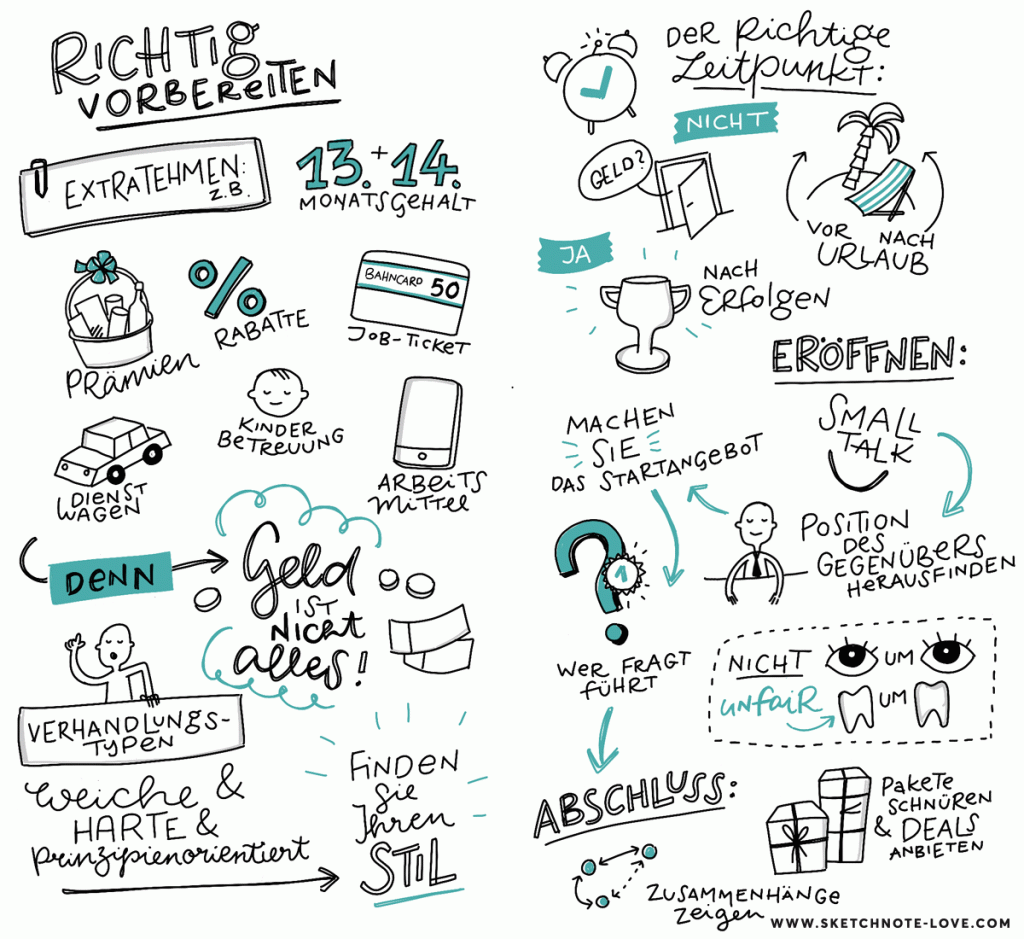 RICHTIG
VORBEREITEN
EXTRATEHMEN:
Z.B.
13. + 14.
MONATSGEHALT
PRÄMIEN
%
RABATTE
BAHNCARD 50
JOB-TICKET
KINDER
BETREUUNG
DIENST
WAGEN
ARBEITS
MITTEL
DENN
Geld
IST
NICHT
alles!
VERHANDLUNGS-
TYPEN
weiche &
HARTE &
prinzipienorientiert
FINDEN
Sie
Ihren
STIL
DER RICHTIGE
Zeitpunkt:
NICHT
GELD?
VOR NACH
URLAUB
JA
NACH
ERFOLGEN
ERÖFFNEN:
SMALL
TALK
POSITION
DES
GEGENÜBERS
HERAUSFINDEN
MACHEN
SIE
DAS STARTANGEBOT
?
1
WER FRAGT
FÜHRT
NICHT UM
unfair UM
ABSCHLUSS:
ZUSAMMENHÄNGE
zeigen
PAKETE
SCHNÜREN
& DEALS
ANBIETEN
WWW.SKETCHNOTE-LOVE.COM